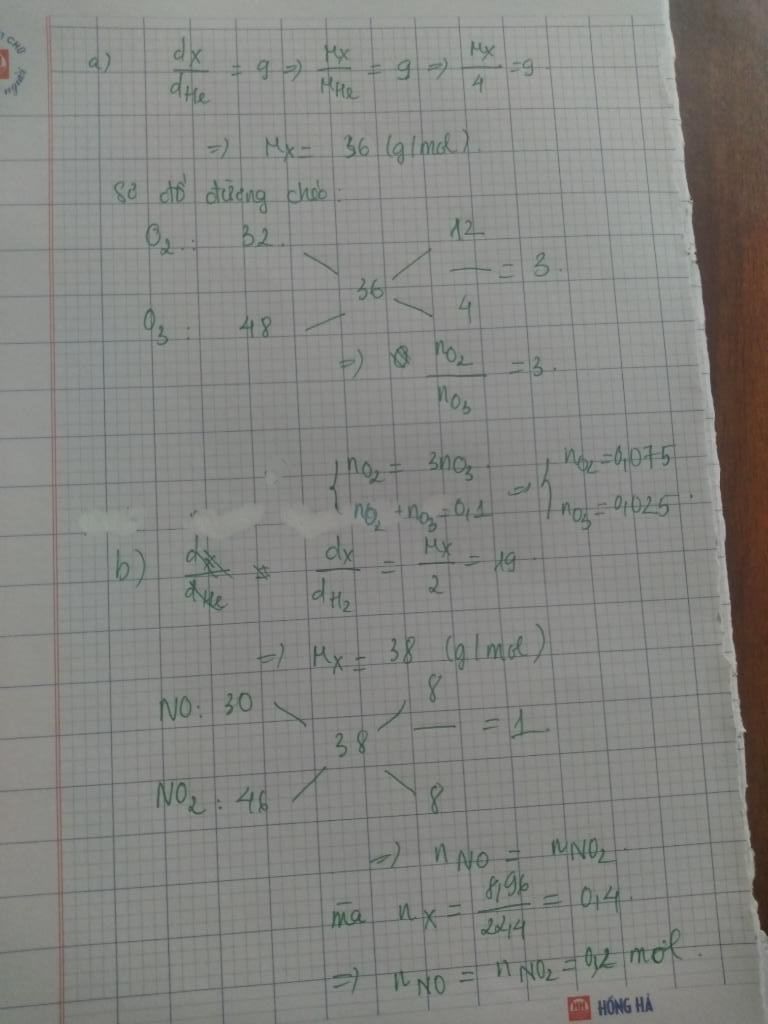 CHỮ
người
a) dx/dHe = 9 => Mx/MHe = 9 => Mx/4 = 9
=> Mx = 36 (g/mol)
Sơ đồ đường chéo:
O2: 32 12
36 — = 3.
O3: 48 4
=> nO2/nO3 = 3.
{ nO2 = 3nO3 => { nO2 = 0,075
nO2 + nO3 = 0,1 nO3 = 0,025.
b) dx/dHe dx/dH2 = Mx/2 = 19
=> Mx = 38 (g/mol)
NO: 30 8
38 — = 1
NO2: 46 8
=> nNO = nNO2
mà nX = 8,96/22,4 = 0,4.
=> nNO = nNO2 = 0,2 mol.
HH HỒNG HÀ